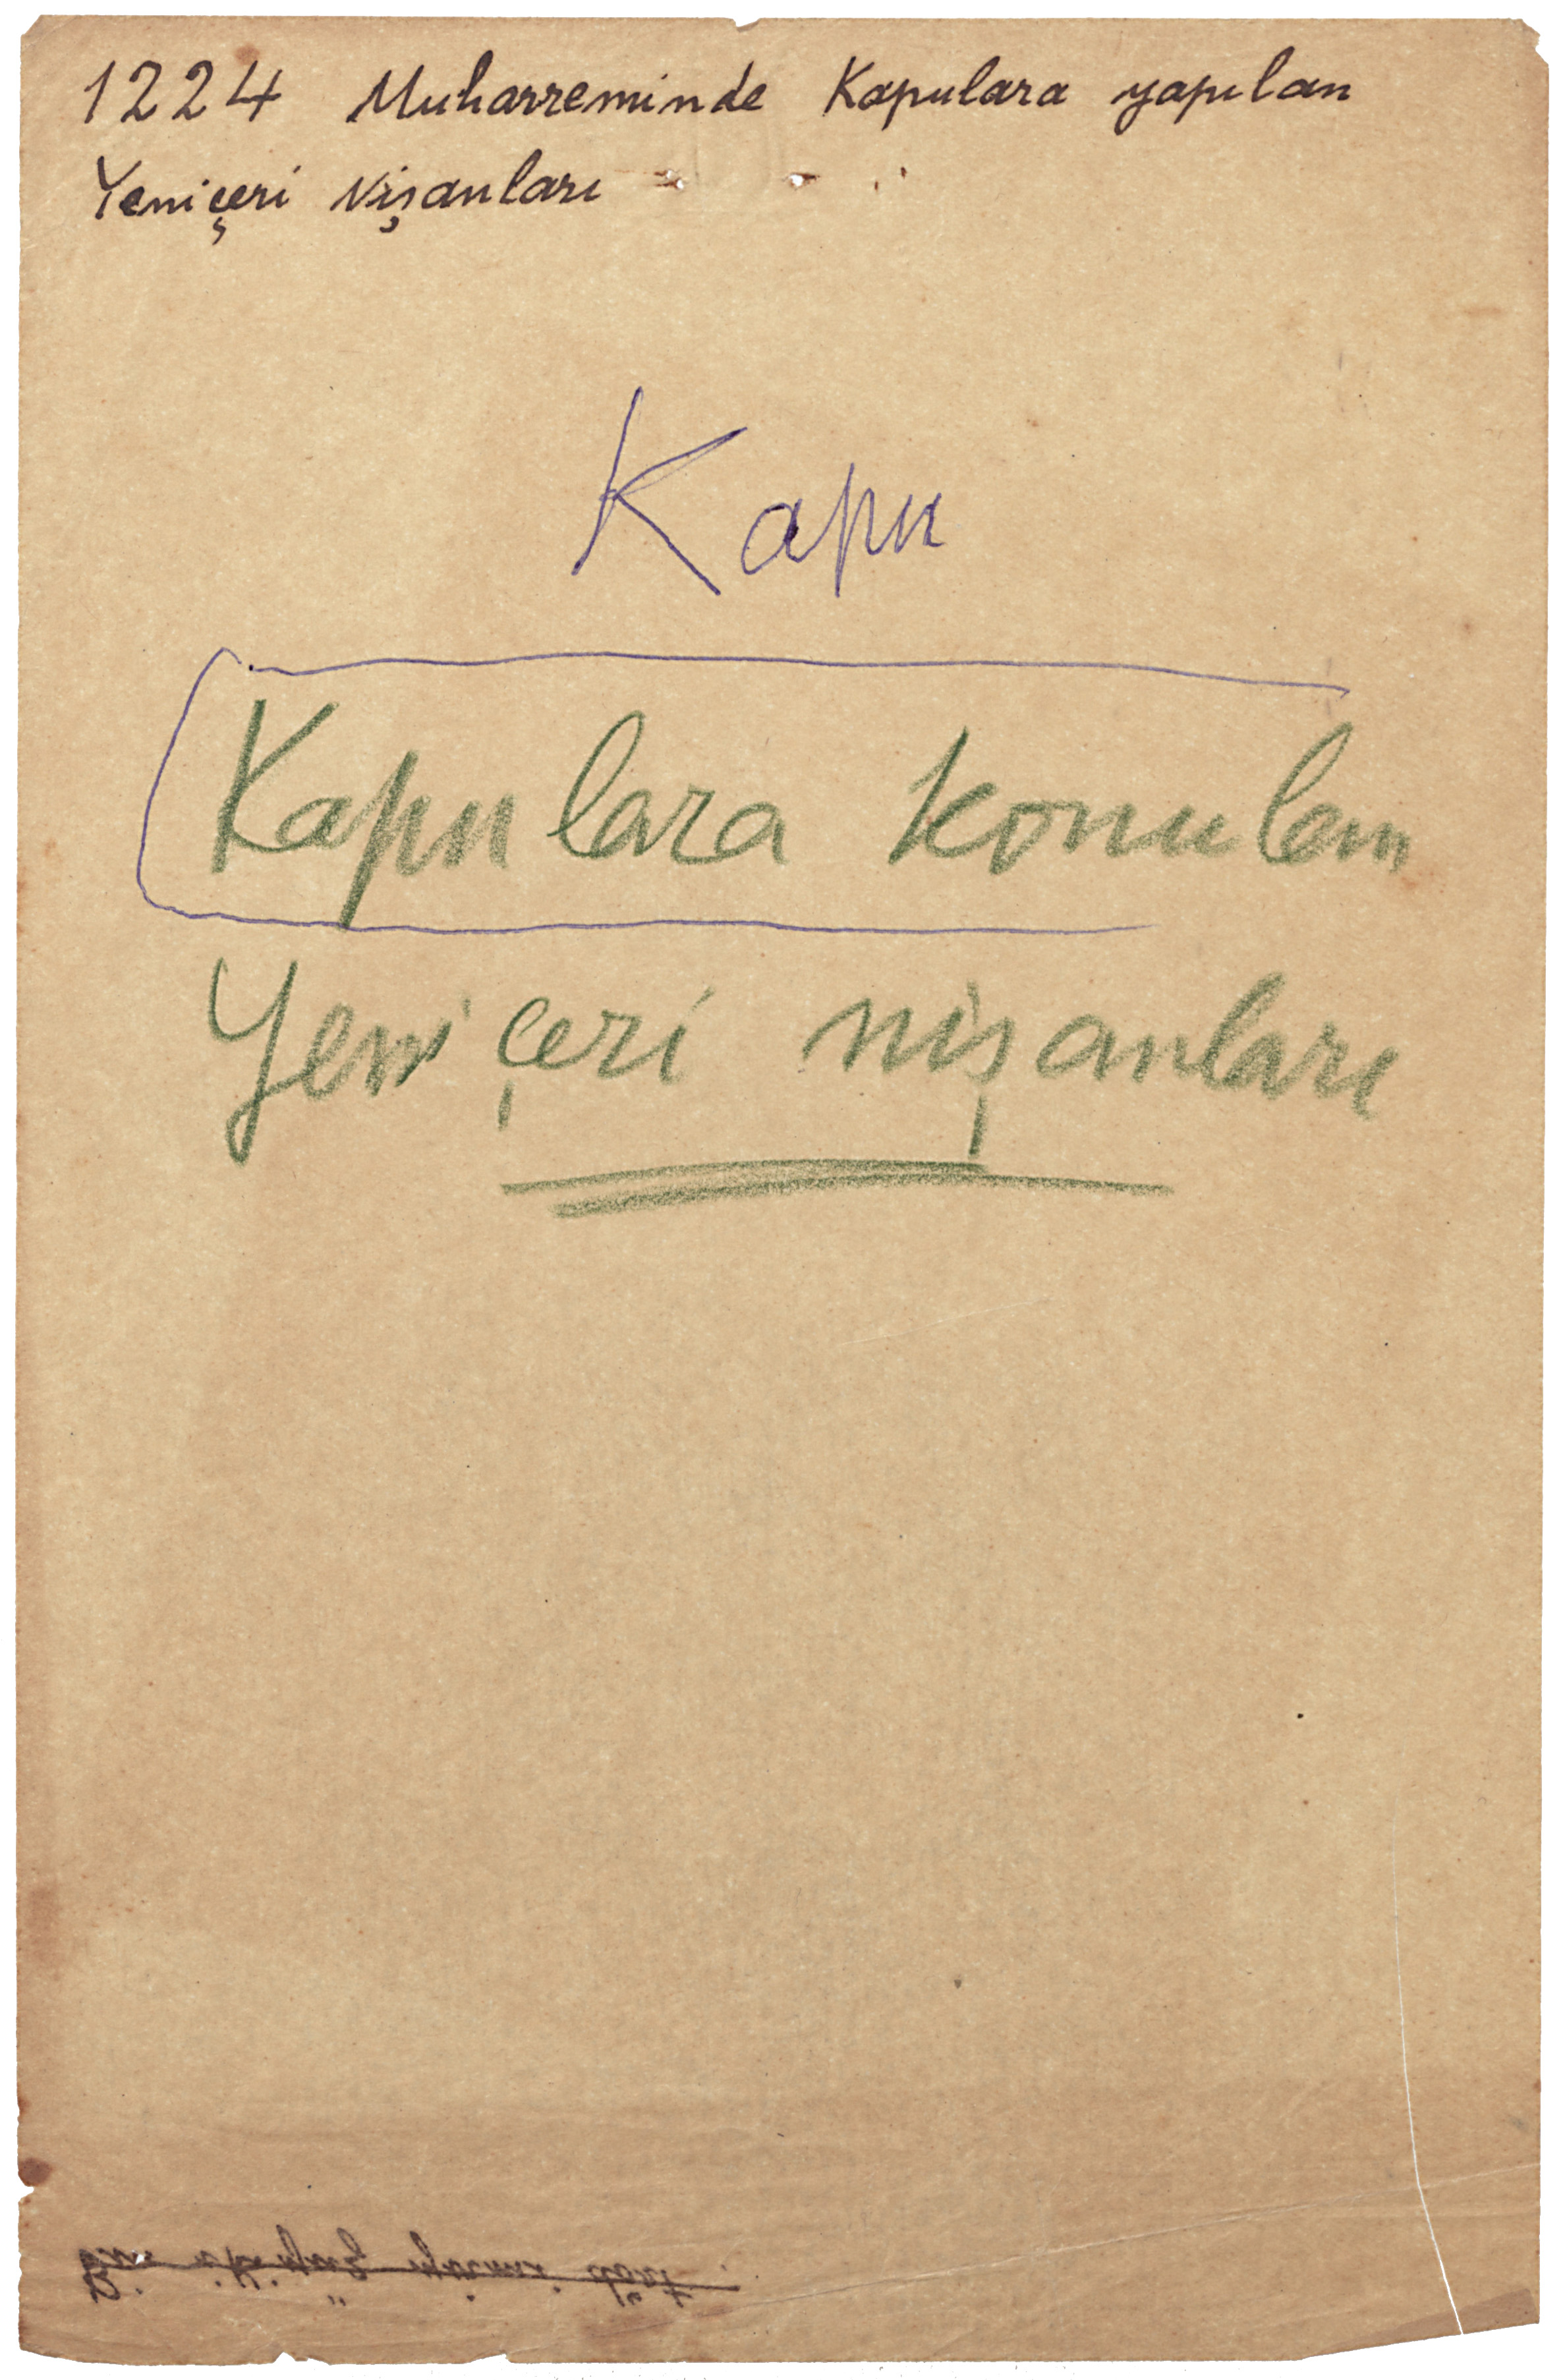 1224 Muharreminde Kapulara yapılan
Yeniçeri Nişanları
Kapu
Kapulara konulan
Yeniçeri nişanları